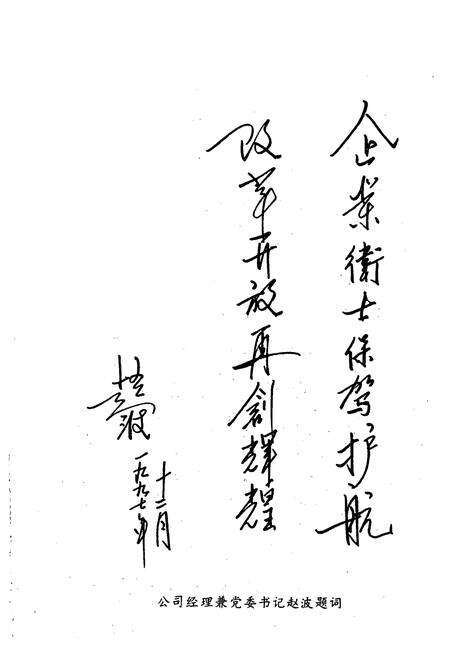 企業衛士保駕护航
改革开放再創輝煌
赵波
一九九七年
十二月
公司经理兼党委书记赵波题词